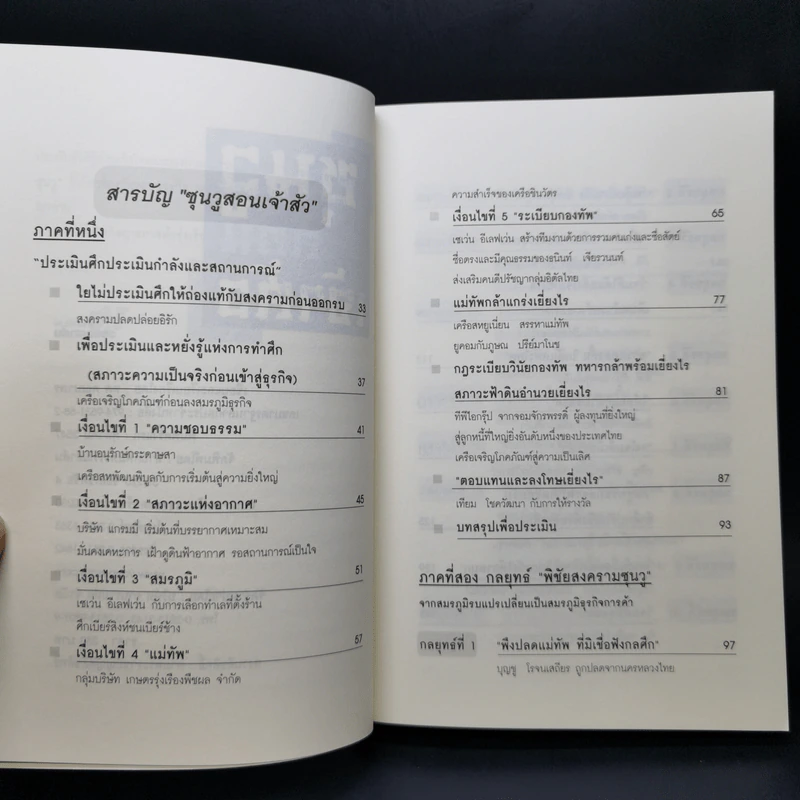 สารบัญ "ซุนวูสอนเจ้าสัว"
ภาคที่หนึ่ง
"ประเมินศึกประเมินกำลังและสถานการณ์"
ใยไม่ประเมินศึกให้ถ่องแท้กับสงครามก่อนออกรบ 33
สงครามปลดปล่อยอิรัก
เพื่อประเมินและหยั่งรู้แห่งการทำศึก
(สภาวะความเป็นจริงก่อนเข้าสู่ธุรกิจ) 37
เครือเจริญโภคภัณฑ์ก่อนลงสมรภูมิธุรกิจ
เงื่อนไขที่ 1 "ความชอบธรรม" 41
บ้านอนุรักษ์กระดาษสา
เครือสหพัฒนพิบูลกับการเริ่มต้นสู่ความยิ่งใหญ่
เงื่อนไขที่ 2 "สภาวะแห่งอากาศ" 45
บริษัท แกรมมี่ เริ่มต้นที่บรรยากาศเหมาะสม
มั่นคงเคหะการ เฝ้าดูดินฟ้าอากาศ รอสถานการณ์เป็นใจ
เงื่อนไขที่ 3 "สมรภูมิ" 51
เซเว่น อีเลฟเว่น กับการเลือกทำเลที่ตั้งร้าน
ศึกเบียร์สิงห์ชนเบียร์ช้าง
เงื่อนไขที่ 4 "แม่ทัพ" 57
กลุ่มบริษัท เกษตรรุ่งเรืองพืชผล จำกัด
ความสำเร็จของเครือชินวัตร
เงื่อนไขที่ 5 "ระเบียบกองทัพ" 65
เซเว่น อีเลฟเว่น สร้างทีมงานด้วยการรวมคนเก่งและซื่อสัตย์
ซื่อตรงและมีคุณธรรมของธนินท์ เจียรวนนท์
ส่งเสริมคนดีปรัชญากลุ่มอิตัลไทย
แม่ทัพกล้าแกร่งเยี่ยงไร 77
เครือสหยูเนี่ยน สรรหาแม่ทัพ
ยูคอมกับภูษณ ปรีย์มาโนช
กฎระเบียบวินัยกองทัพ ทหารกล้าพร้อมเยี่ยงไร
สภาวะฟ้าดินอำนวยเยี่ยงไร 81
ทีพีไอกรุ๊ป จากจอมจักรพรรดิ์ ผู้ลงทุนที่ยิ่งใหญ่
สู่ลูกหนี้ที่ใหญ่ยิ่งอันดับหนึ่งของประเทศไทย
เครือเจริญโภคภัณฑ์สู่ความเป็นเลิศ
"ตอบแทนและลงโทษเยี่ยงไร" 87
เทียม โชควัฒนา กับการให้รางวัล
บทสรุปเพื่อประเมิน 93
ภาคที่สอง กลยุทธ์ "พิชัยสงครามซุนวู"
จากสมรภูมิรบแปรเปลี่ยนเป็นสมรภูมิธุรกิจการค้า
กลยุทธ์ที่ 1 "พึงปลดแม่ทัพ ที่มิเชื่อฟังกลศึก" 97
บุญชู โรจนเสถียร ถูกปลดจากนครหลวงไทย